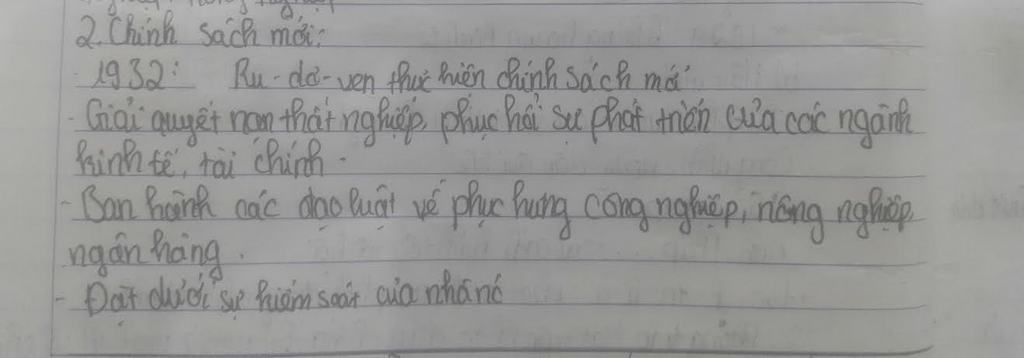 2. Chính sách mới:
1932: Ru-dơ-ven thực hiện chính sách mới
- Giải quyết nạn thất nghiệp, phục hồi sự phát triển của các ngành
kinh tế, tài chính.
- Ban hành các đạo luật về phục hưng công nghiệp, nông nghiệp,
ngân hàng.
- Đặt dưới sự kiểm soát của nhà nc